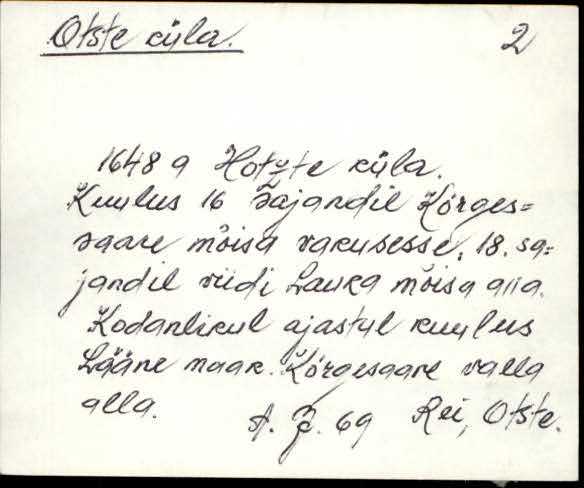 Otste küla.
2
1648 a Hotste küla.
Kuulus 16 sajandil Kõrges=
saare mõisa vakusesse, 18. sa=
jandil viidi Lauka mõisa alla.
Kodanlikul ajastul kuulus
Lääne maak. Kõrgesaare valla
alla.
A. 69 Rei, Otste.